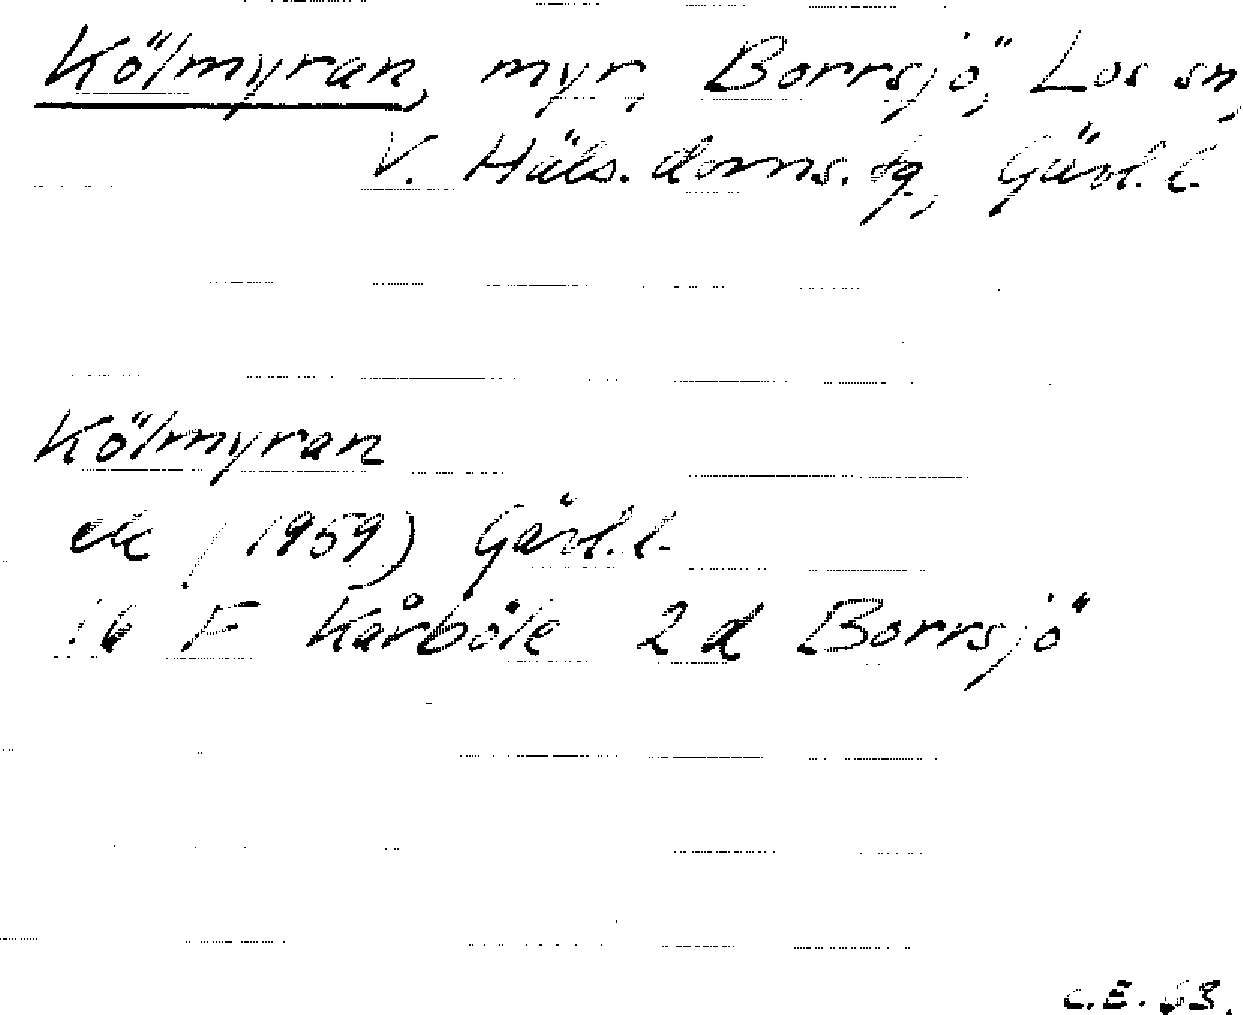 Kölmyran, myr, Borrsjö, Los sn,
V. Häls. doms. tg., Gävl. l.
Kölmyran
ek (1959) Gävl. l.
16 F Kårböle 2 d Borrsjö
C.E. 63.